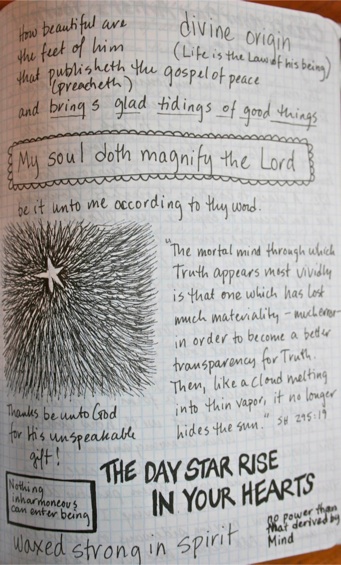 How beautiful are
the feet of him
that publisheth the gospel of peace
(preacheth)
and brings glad tidings of good things
divine origin
(Life is the Law of his being)
My soul doth magnify the Lord
be it unto me according to thy word.
"The mortal mind through which
Truth appears most vividly
is that one which has lost
much materiality – much error –
in order to become a better
transparency for Truth.
Then, like a cloud melting
into thin vapor, it no longer
hides the sun." SH 295:19
Thanks be unto God
for His unspeakable
gift!
THE DAY STAR RISE
IN YOUR HEARTS
Nothing
inharmoneous
can enter being
waxed strong in spirit
no power than
that derived by
Mind